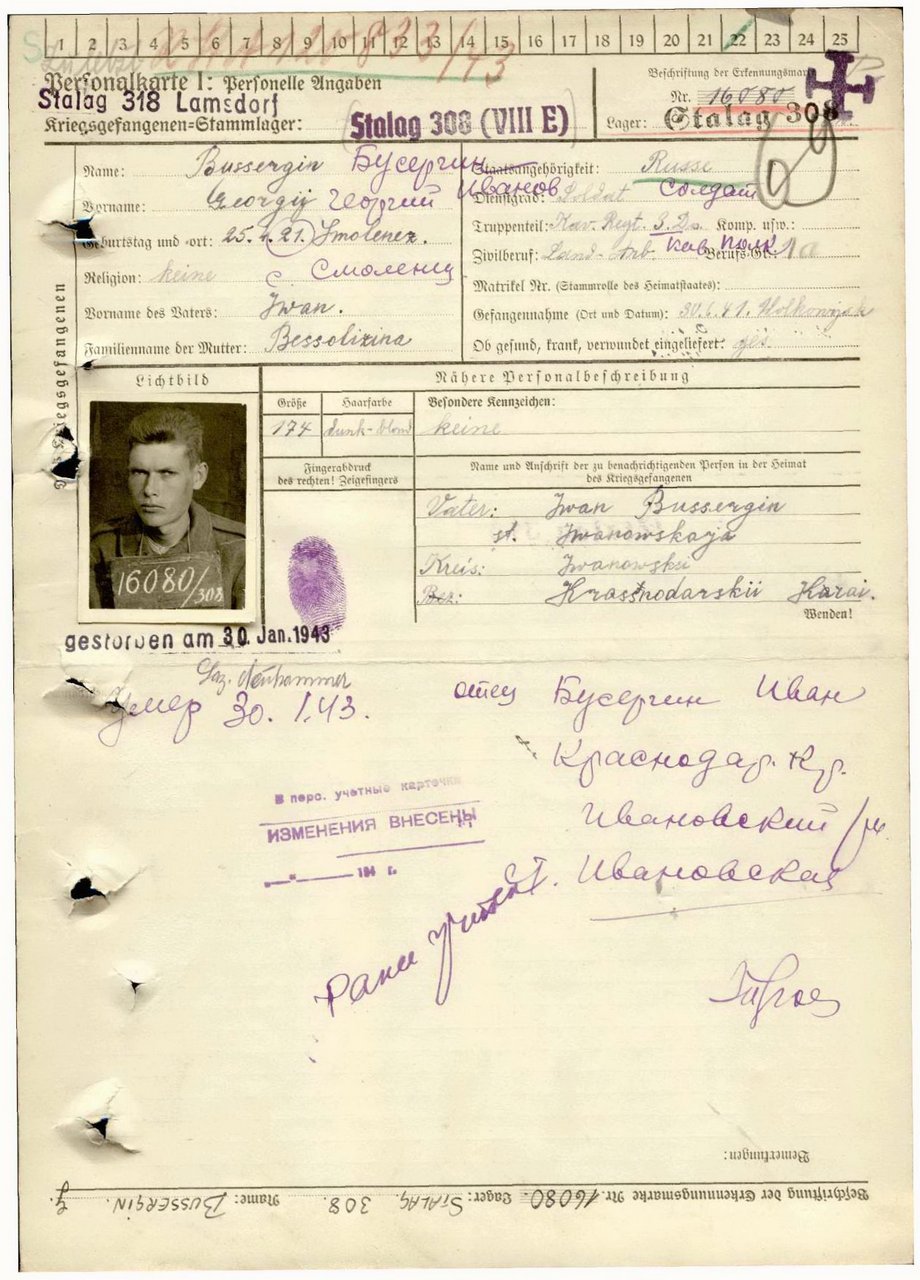 1 2 3 4 5 6 7 8 9 10 11 12 13 14 15 16 17 18 19 20 21 22 23 24 25
Personalkarte I: Personelle Angaben
Beschriftung der Erkennungsmarke
Stalag 318 Lamsdorf
Nr. 16080
Kriegsgefangenen=Stammlager: Stalag 308 (VIII E)
Lager: Stalag 308
Name: Bussergin Бусергин
Staatsangehörigkeit: Russe
Vorname: Georgij Георгий Иванов
Dienstgrad: Soldat Солдат
Geburtstag und =ort: 25.4.21. Smolenez.
Truppenteil: Kav. Regt. Komp. usw.:
Zivilberuf: Land-Arb. Кав полк Berufs-Gr.: 1a
Religion: keine с Смоленец
Matrikel Nr. (Stammrolle des Heimatstaates):
Vorname des Vaters: Iwan.
Gefangennahme (Ort und Datum): 30.6.41.
Familienname der Mutter: Bessolizina
Ob gesund, krank, verwundet eingeliefert: ges
des Kriegsgefangenen
Lichtbild
Nähere Personalbeschreibung
Größe
Haarfarbe
Besondere Kennzeichen:
174
dunk-blond
keine
Fingerabdruck
des rechten! Zeigefingers
Name und Anschrift der zu benachrichtigenden Person in der Heimat
des Kriegsgefangenen
Vater: Iwan Bussergin
st. Iwanowskaja
Kreis: Iwanowskii
Bez: Krassnodarskii Karai.
Wenden!
16080/308
gestorben am 30. Jan. 1943
Laz. Neuhammer
Умер 30. 1.43.
отец Бусергин Иван
Краснодар. Кр.
Ивановский
ст. Ивановская
В перс. учетные карточки
ИЗМЕНЕНИЯ ВНЕСЕНЫ
194 г.
Bemerkungen:
Beschriftung der Erkennungsmarke Nr. 16080. Lager: STALAG 308. Name: BUSSERGIN.